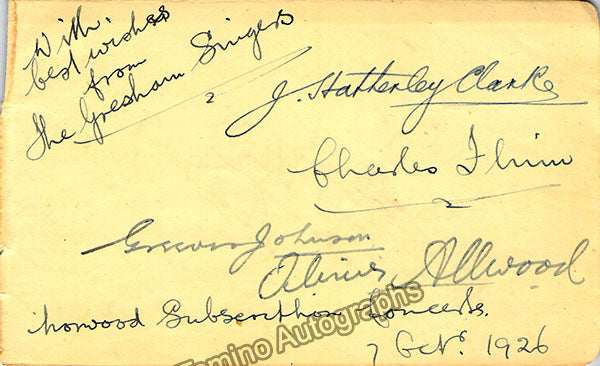 With
best wishes
from
The Gresham Singers
J. Hatherley Clarke
Charles
Johnson
Allwood
Norwood Subscription Concerts.
7 Oct. 1926
Tamino Autographs